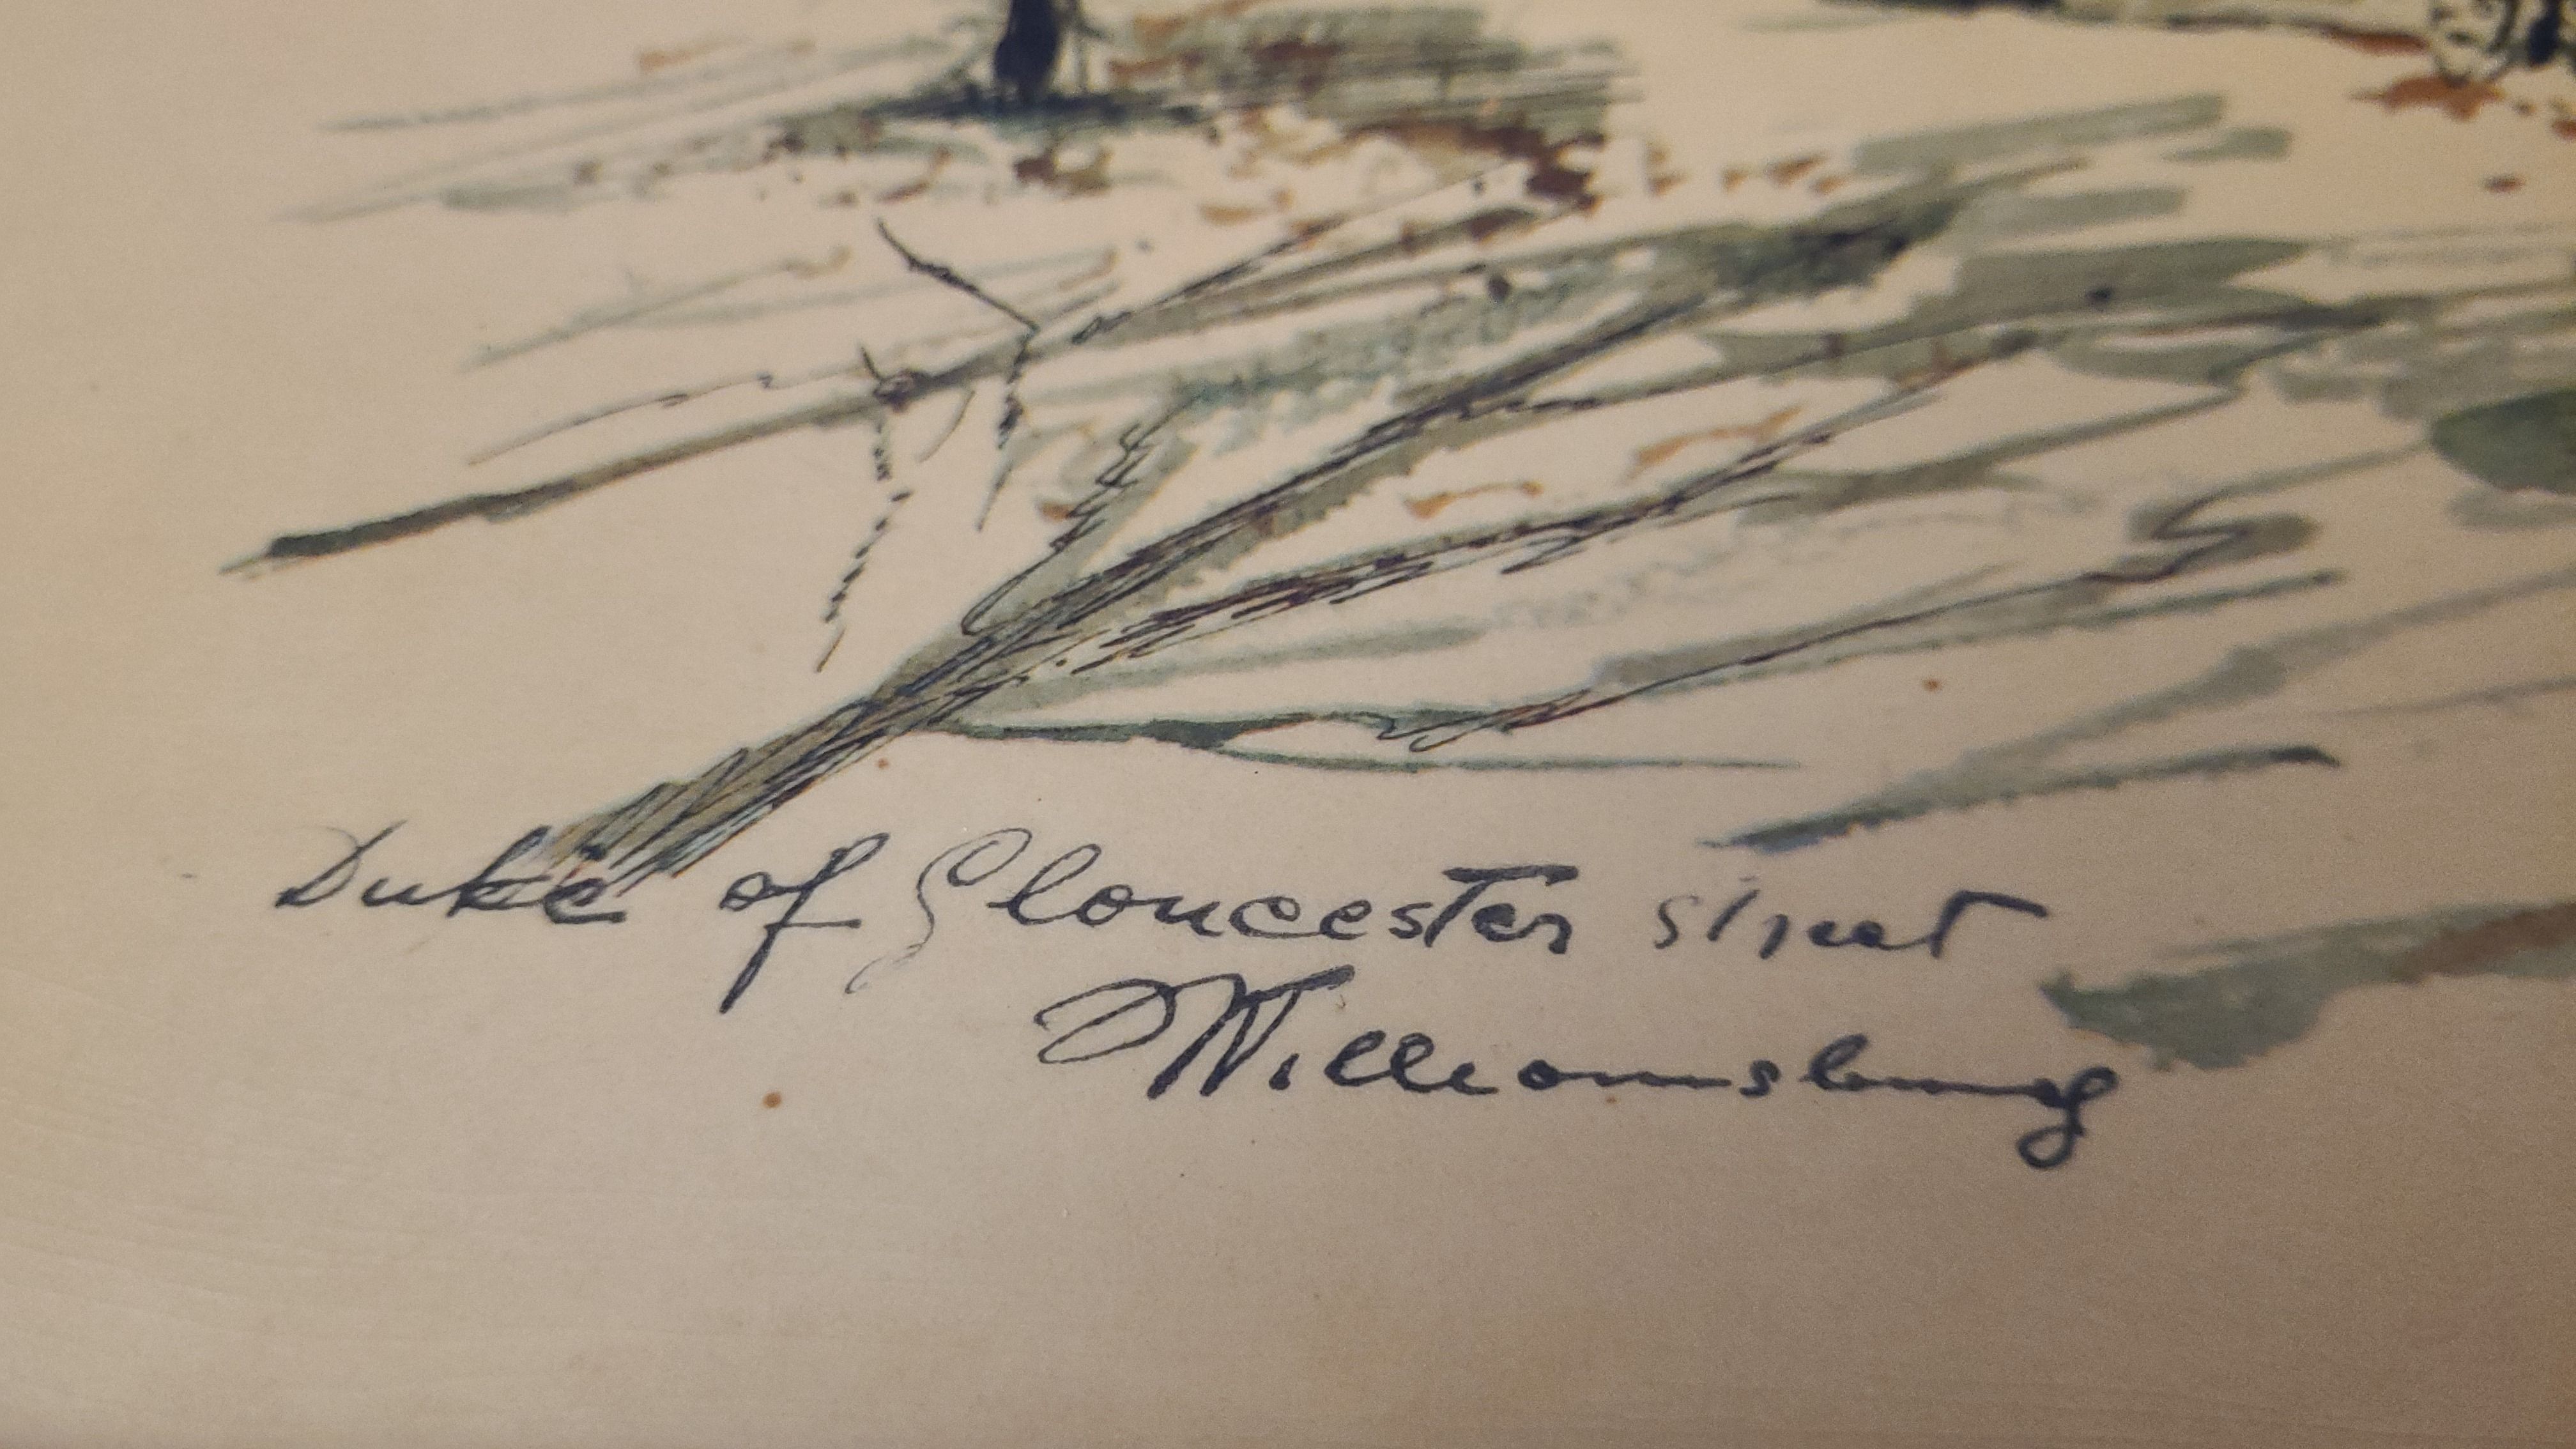 Duke of Gloucester Street
Williamsburg